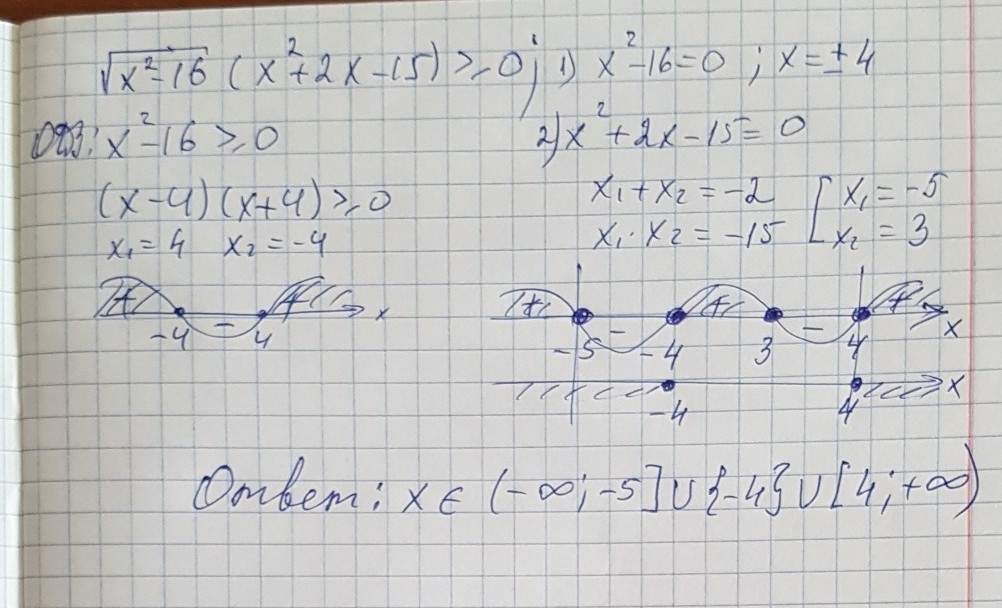 √(x²-16) (x²+2x-15) ≥ 0; 1) x²-16=0 ; x=±4
ОДЗ: x²-16 ≥ 0
(x-4)(x+4) ≥ 0
x₁=4 x₂=-4
+ - + x
-4 4
2) x²+2x-15=0
x₁+x₂=-2 [x₁=-5
x₁·x₂=-15 [x₂=3
+ - + - + x
-5 -4 3 4
x
-4 4
Ответ: x∈(-∞;-5]∪{-4}∪[4;+∞)